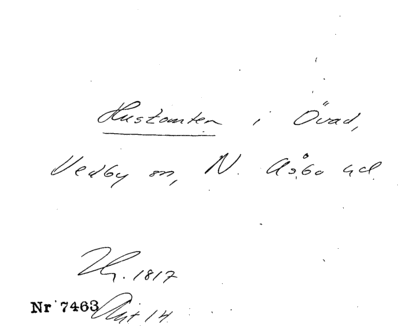 Hustomten i Övad,
Vedby sn, N. Åsbo hd.
1817
Nr 7463 14